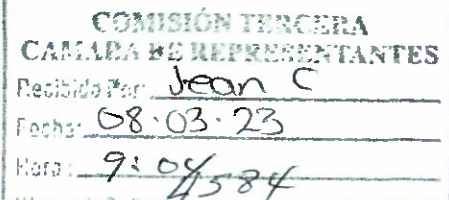 COMISIÓN TERCERA
CAMARA DE REPRESENTANTES
Recibido Por: Jean C
Fecha: 08.03.23
Hora: 9:04
4584